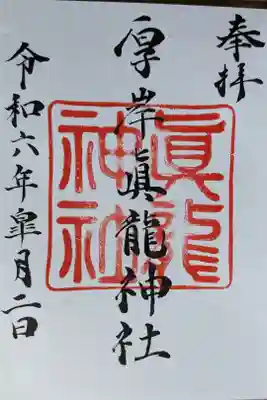 奉拝
厚岸眞龍神社
眞龍
神社
令和六年皐月二日